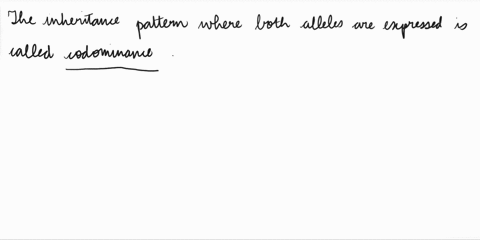 The inheritance pattern where both alleles are expressed is
called codominance.